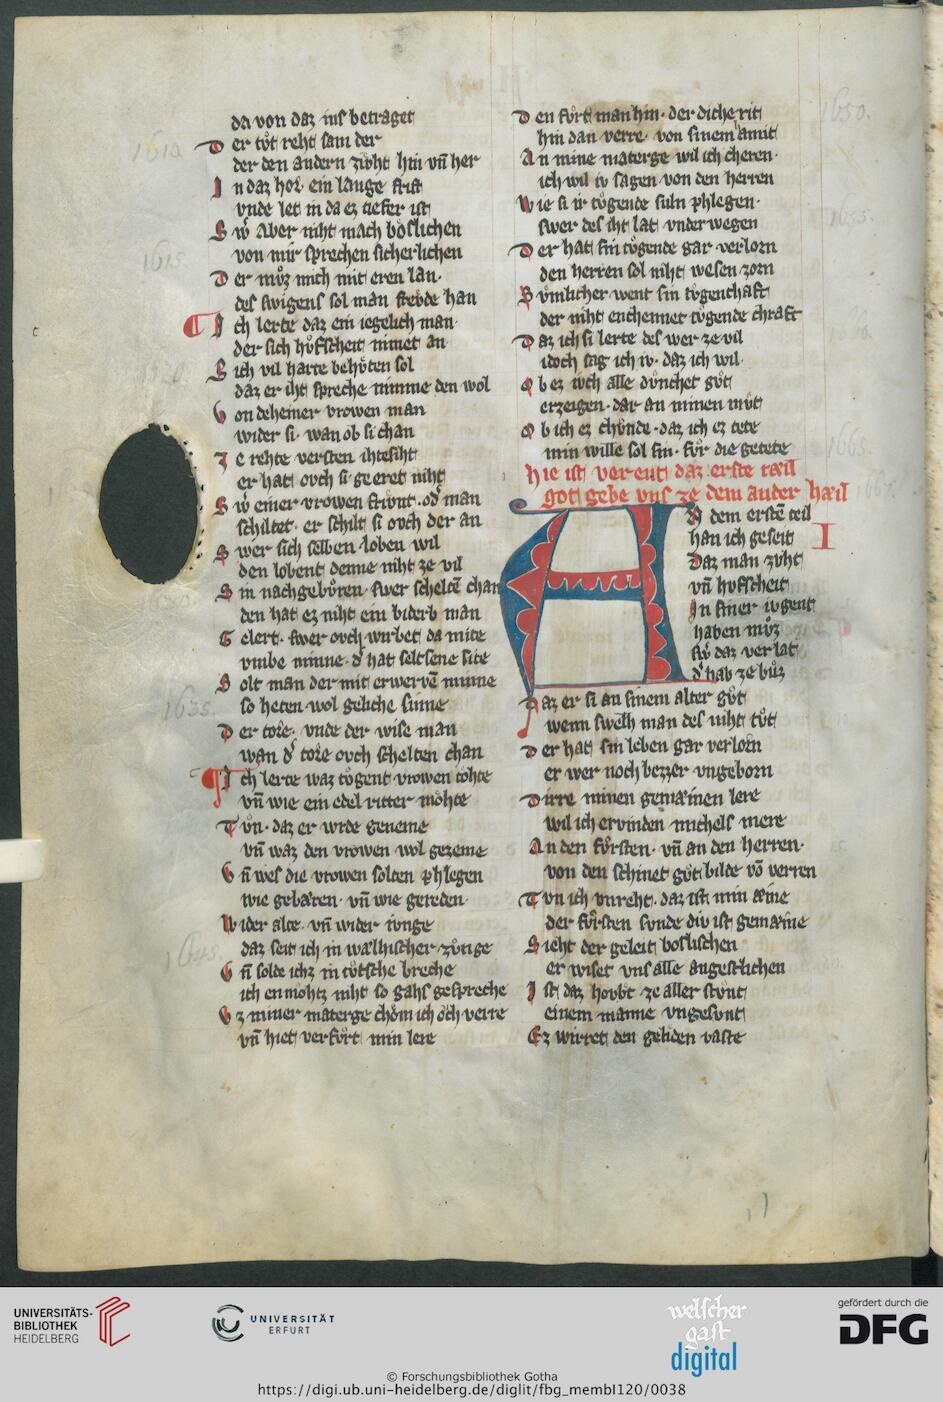 da von daz ins betraget
Der tůt reht sam der
der den andern zivht hin vn̄ her
In daz hor ein lange frist
vnde let in da ez tiefer ist
Sw̓ aber niht mach bôslichen
von mir sprechen sicherlichen
Der můz mich mit eren lan·
des swigens sol man frevde han
Ich lerte daz ein iegelich man·
der sich hŏfscheit nimet an
Sich vil harte behůten sol
daz er iht spreche minne den wol
Von deheiner vrowen man
wider si· wan ob si chan
Ze rehte versten ihtesiht
er hat ovch si geeret niht
Sw̓ einer vrowen frivnt· od̓ man
schiltet· er schilt si ovch der an
Swer sich selben loben wil
den lobent denne niht ze vil
Sin nachgebůren· swer scheltē chan
den hat ez niht ein biderb man
Gelert· swer ovch wirbet da mite
vmbe minne· d̓ hat seltsene site
Solt man der mit erwervē minne
so heten wol geliche sinne
Der tore· vnde der wise man
wan d̓ tore ovch schelten chan
Ich lerte waz tvgent vrowen tohte
vn̄ wie ein edel ritter mŏhte
Tůn· daz er wrde geneme
vn̄ waz den vrowen wol gezeme
Vn̄ wes die vrowen solten phlegen
wie gebaren· vn̄ wie gereden·
Wider alte· vn̄ wider ivnge
daz seit ich in wælhischer zvnge
Vn̄ solde ichz in tvtsche breche
ich enmohtz niht so gahs gespreche
Vz miner materge chŏm ich ŏch verre
vn̄ hiet verfůrt min lere
Den fůrt man hin· der dicherit
hin dan verre· von sinem amit
An mine materge wil ich cheren·
ich wil iv sagen von den herren
Wie si ir tvgende suln phlegen·
swer des iht lat vnder wegen
Der hat sin tvgende gar verlorn
den herren sol niht wesen zorn
Bvmlicher went sin tvgenthaft
der niht enchennet tvgende chraft
Daz ich si lerte des wer ze vil
idoch sag ich iv· daz ich wil
Ob ez ivch alle dvnchet gůt
erzeigen· dar an minen mvt
Ob ich ez chvnde· daz ich ez tete
min wille sol sin· fůr die getete
hie ist verent daz erste tæil
got gebe vns ze dem ander hæil
AN dem erstē teil
han ich geseit
I
Daz man zvht
vn̄ hvfscheit
In siner ivgent
haben mvz
sw̓ daz verlat
d̓ hab ze bůz
Daz er si an sinem alter gůt
wenn swelh man des niht tůt
Der hat sin leben gar verlorn
er wer noch bezzer vngeborn
Dirre minen gemæinen lere
wil ich ervinden michels mere
An den fůrsten· vn̄ an den herren·
von den schinet gůt bilde vō verren
Tvn ich vnreht· daz ist min æine
der fůrsten svnde div ist gemæine
Sieht der geleit boslischen
er wiset vns alle angestlichen
Ist daz hovbt ze aller stvnt
einem manne vngesvnt
Ez wirret den geliden vaste
161a
1615
1635.
1645.
1650.
1655.
1665.
UNIVERSITÄTS-
BIBLIOTHEK
HEIDELBERG
UNIVERSITÄT
ERFURT
welscher
gast
digital
gefördert durch die
DFG
© Forschungsbibliothek Gotha
https://digi.ub.uni-heidelberg.de/diglit/fbg_membI120/0038